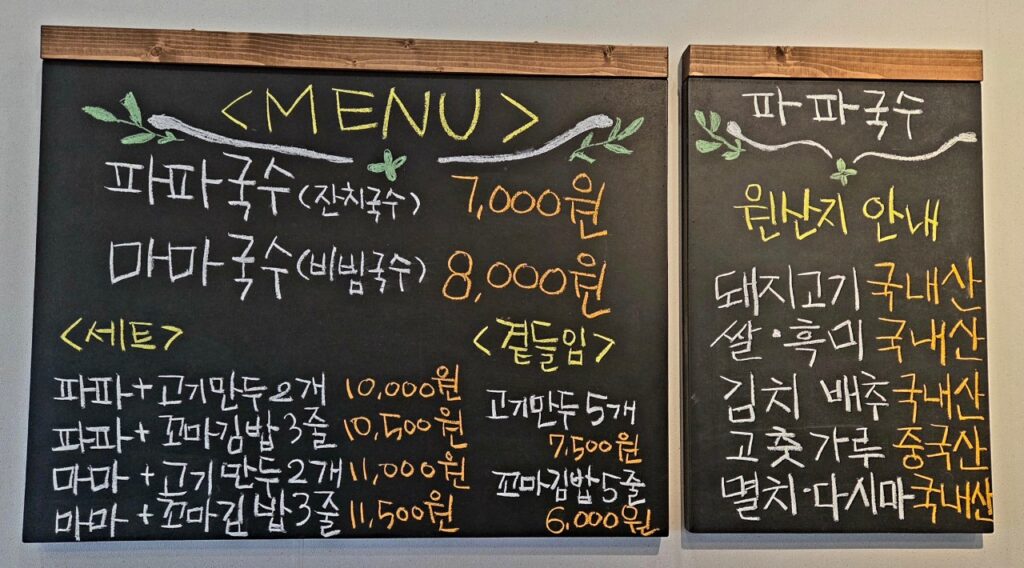 <MENU>
파파국수(잔치국수) 7,000원
마마국수(비빔국수) 8,000원
<세트>
파파+고기만두2개 10,000원
파파+꼬마김밥3줄 10,500원
마마+고기만두2개 11,000원
마마+꼬마김밥3줄 11,500원
<곁들임>
고기만두 5개
7,500원
꼬마김밥 5줄
6,000원
파파국수
원산지 안내
돼지고기 국내산
쌀·흑미 국내산
김치 배추 국내산
고춧가루 중국산
멸치·다시마 국내산